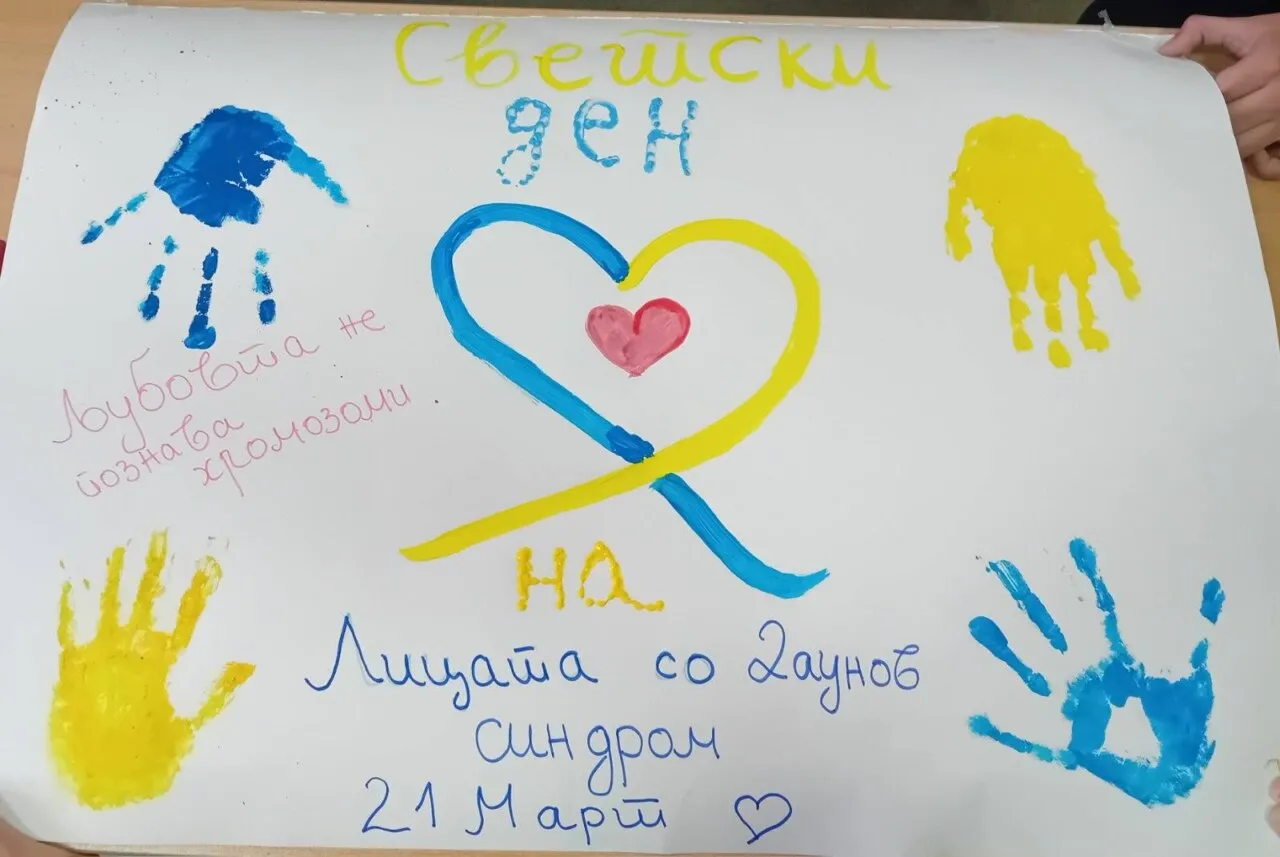 Светски
ден
Љубовта не
познава
хромозоми
на
Лицата со Даунов
синдром
21 Март